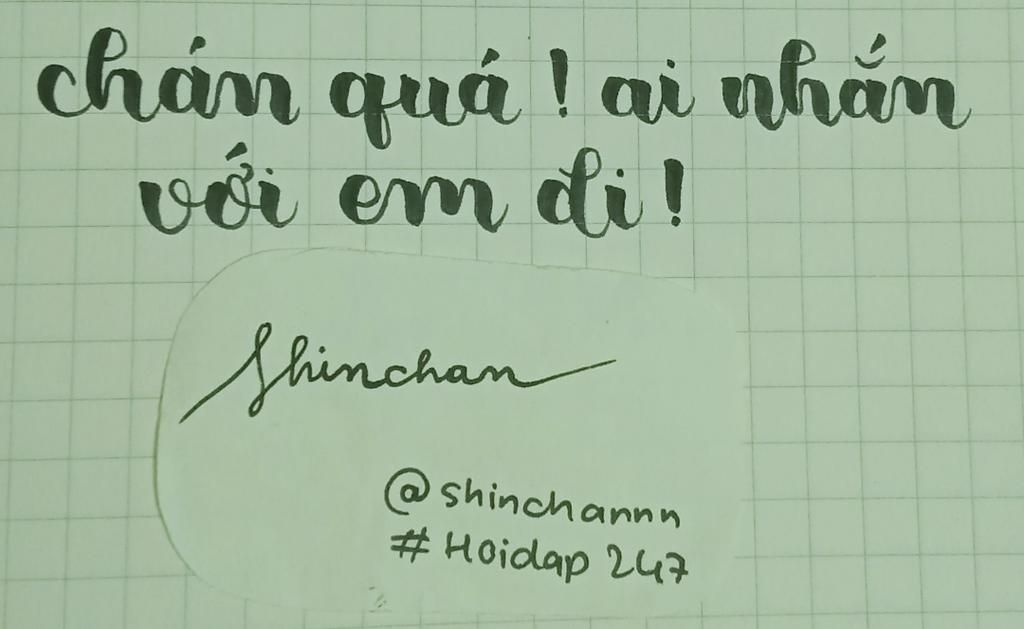 chán quá ! ai nhắn
với em đi !
Shinchan
@shinchannn
#Hoidap 247